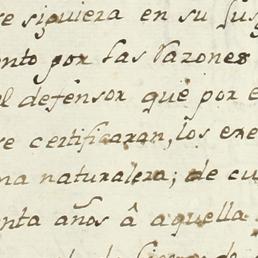 se siguiera en su Jus
nto por las razones
el defensor que por e
se certificaran, los exe
na naturaleza; de cu
enta años â aquella